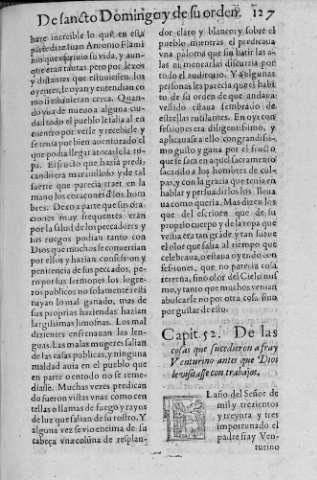 De sancto Domingo y de su orden. 127
haze increible lo que en esta
parte dize Iuan Antonio Flami
nio que escriuio su vida, y aun-
que eran tantas pero por lexos
y distantes que estuuiessen los
oyentes, le oyan y entendian co
mo si estuuieran cerca. Quan-
do yua de nueuo a alguna ciu-
dad todo el pueblo le salia al en
cuentro por verle y recebirle y
se tenia por bien auenturado el
que podia llegar a tocarle la ro-
pa. El fructo que hazia predi-
cando era marauilloso y de tal
suerte que parecia traer en la
mano los coraçones de los hom
bres. De otra parte que sus ora-
ciones muy frequentes eran
por la salud de los peccadores y
sus ruegos podian tanto con
Dios que muchos se conuertian
por ellos y hazian confession y
penitencia de sus peccados, pe-
ro por sus sermones los logre-
ros publicos no solamente resti
tuyan lo mal ganado, mas de
sus proprias haziendas hazian
larguissimas limosnas. Los mal
dizientes enfrenauan las len-
guas. Las malas mugeres salian
de las casas publicas, y ninguna
maldad auia en el pueblo que
en parte o en todo no se reme-
diasse. Muchas vezes predican
do fueron vistas vnas como cen
tellas o llamas de fuego y rayos
de luz que salian de su rostro. Y
alguna vez se vio encima de su
cabeça vna coluna de resplan-
dor claro y blanco, y sobre el
pueblo mientras el predicaua
vna paloma que sin batir las a-
las ni menearlas discurria por
todo el auditorio. Y a algunas
personas les parecia que el habi
to de su orden de que andaua
vestido estaua sembrado de
estrellas rutilantes. En oyr con-
fessiones era diligentissimo, y
aplicauase a ello con grandissi-
mo gusto y gana por el fructo
que se saca en aquel sacramento
sacando a los hombres de cul-
pas, y con la gracia que tenia en
hablar y persuadir los lleua-
ua como queria. Mas dizen los
que del escriuen que de su
proprio cuerpo y de la ropa que
vestia era tan grande y tan suaue
el olor que salia al tiempo que
celebraua, o estaua oyendo con
fessiones, que no parecia cosa
terrena, sino olor del Cielo mis
mo, y tanto que muchos venian
a buscarle no por otra cosa sino
por gustar de esto.
Capit. 52. De las
cosas que sucedieron a fray
Venturino antes que Dios
le visitasse con trabajos.
EL año del Señor de
mil y trezientos
y treynta y tres
importunado el
padre fray Ven-
turino